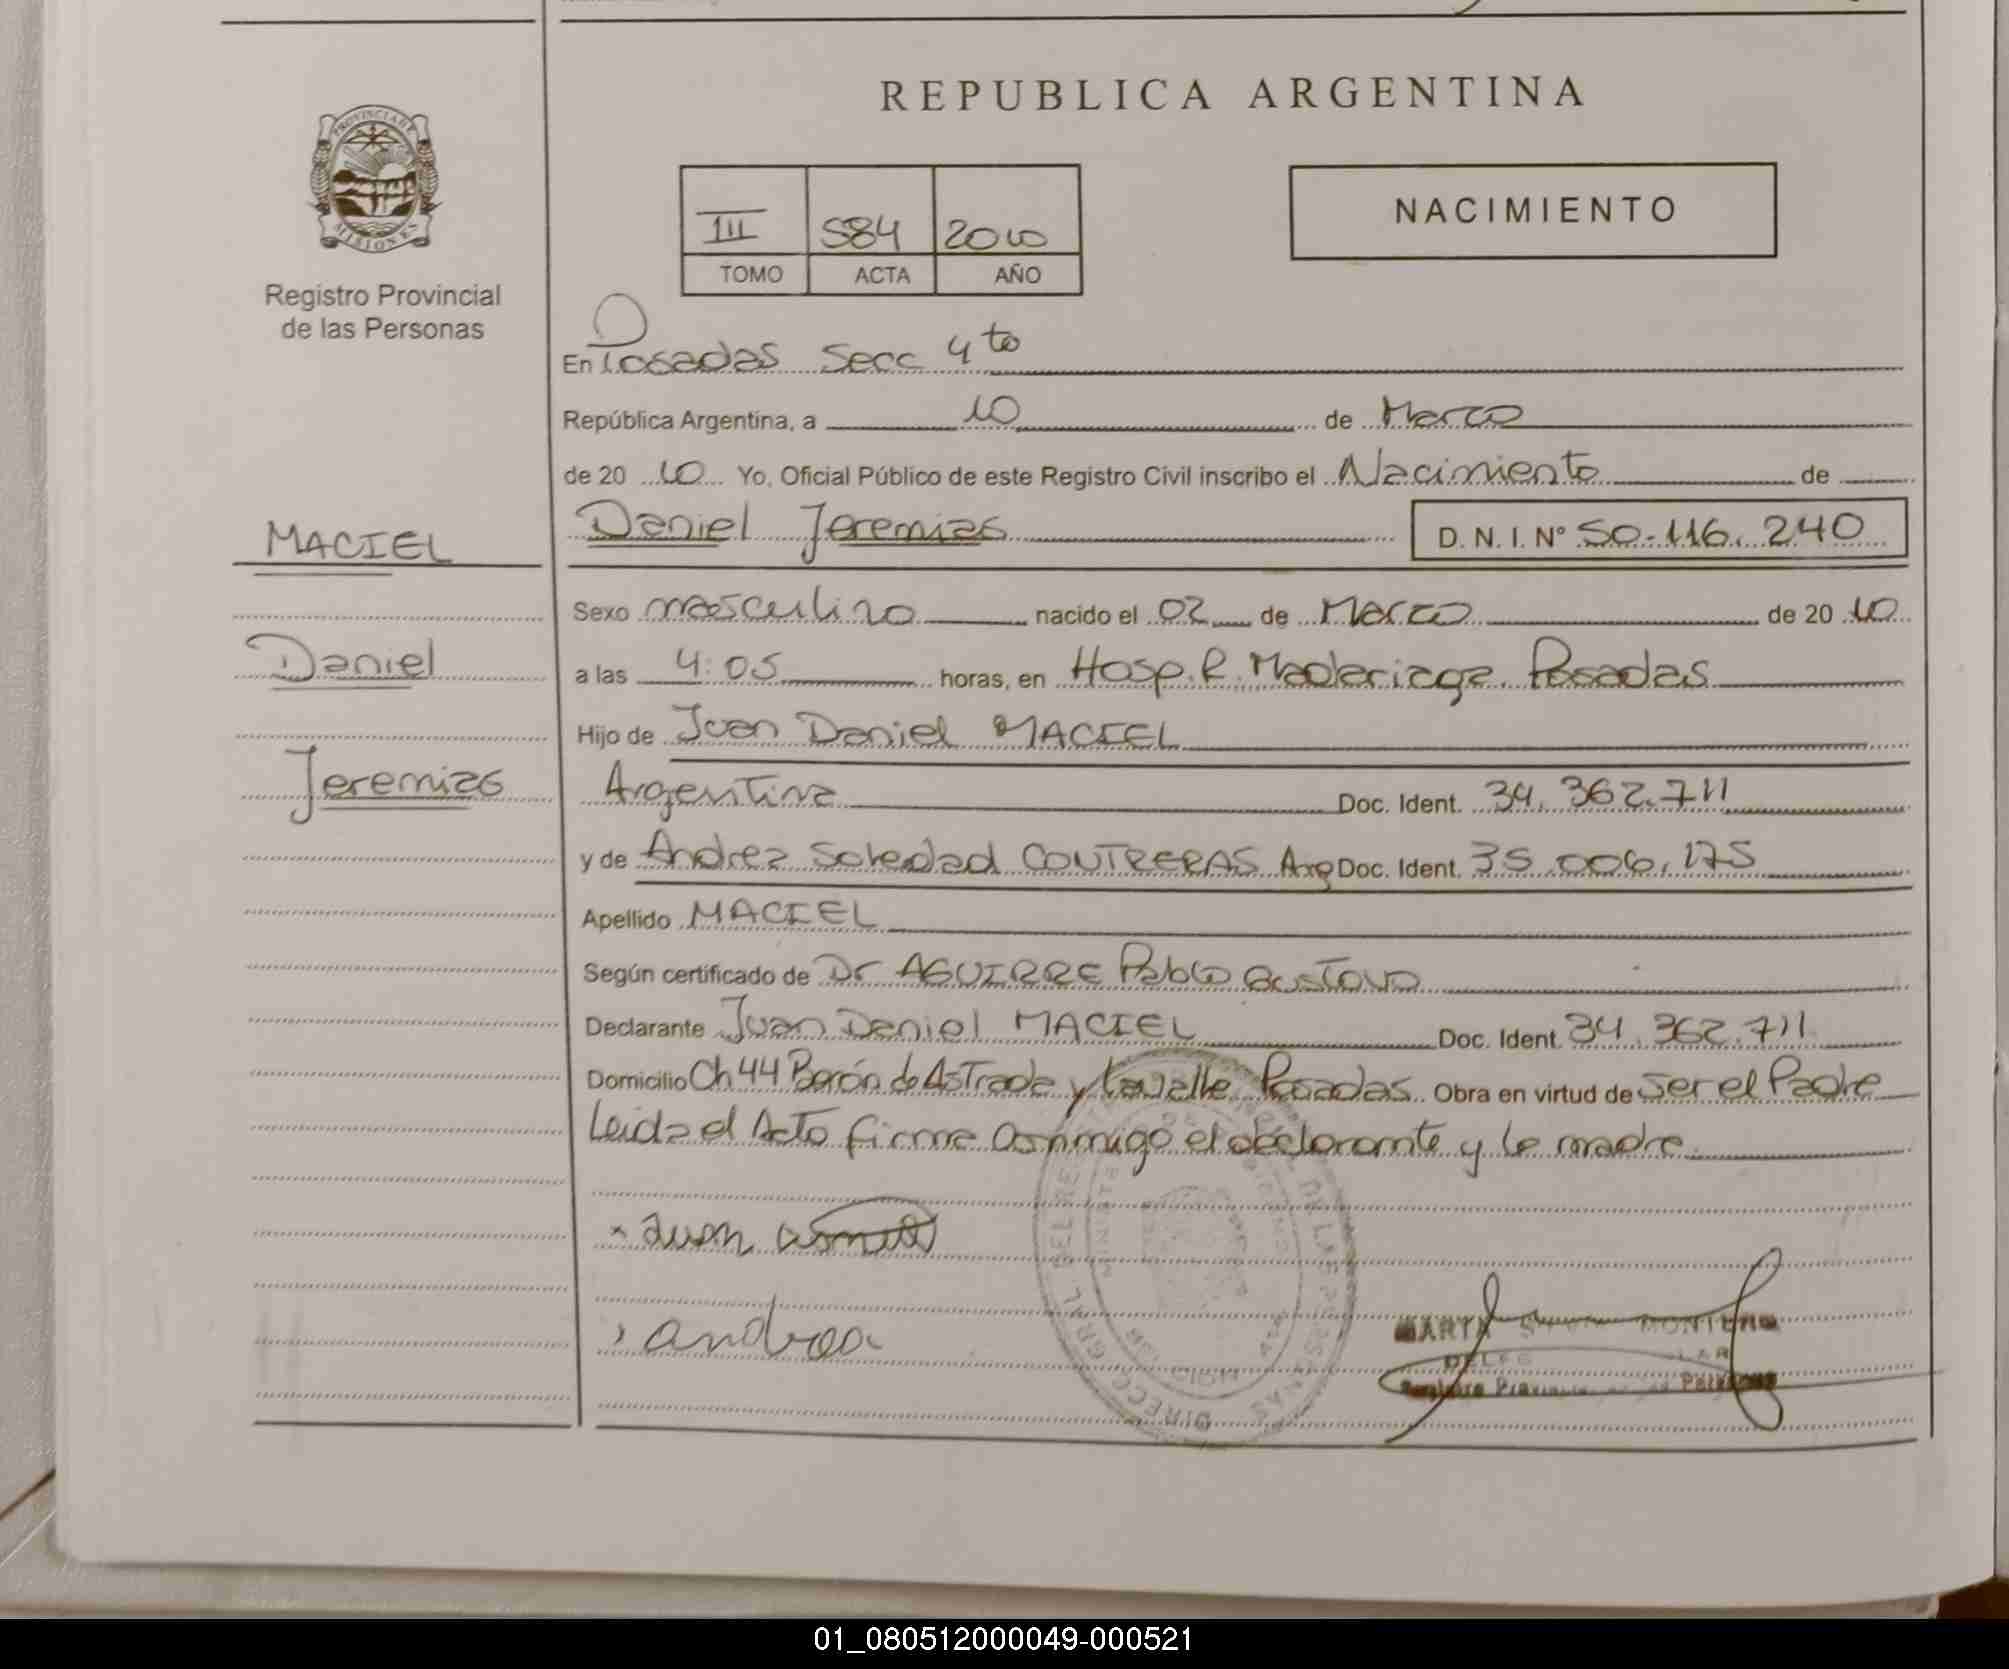 REPUBLICA ARGENTINA
PROVINCIA DE
MISIONES
Registro Provincial
de las Personas
III 584 2010
TOMO ACTA AÑO
NACIMIENTO
En Posadas Secc 4to
República Argentina, a 10 de Marzo
de 20 10 Yo, Oficial Público de este Registro Civil inscribo el Nacimiento de
Daniel Jeremias D. N. I. Nº 50.116.240
MACIEL
Daniel
Jeremias
Sexo masculino nacido el 02 de Marzo de 20 10
a las 4:05 horas, en Hosp. R. Madariaga. Posadas
Hijo de Juan Daniel MACIEL
Argentina Doc. Ident. 34.362.711
y de Andrea Soledad CONTRERAS Arg Doc. Ident. 35.006.175
Apellido MACIEL
Según certificado de Dr AGUIRRE Pablo Gustavo
Declarante Juan Daniel MACIEL Doc. Ident. 34.362.711
Domicilio Ch 44 Barón de Astrada y Lavalle Posadas. Obra en virtud de ser el Padre
Leida el Acta firma conmigo el declarante y la madre.
Juan
andrea
MARTA
01_080512000049-000521